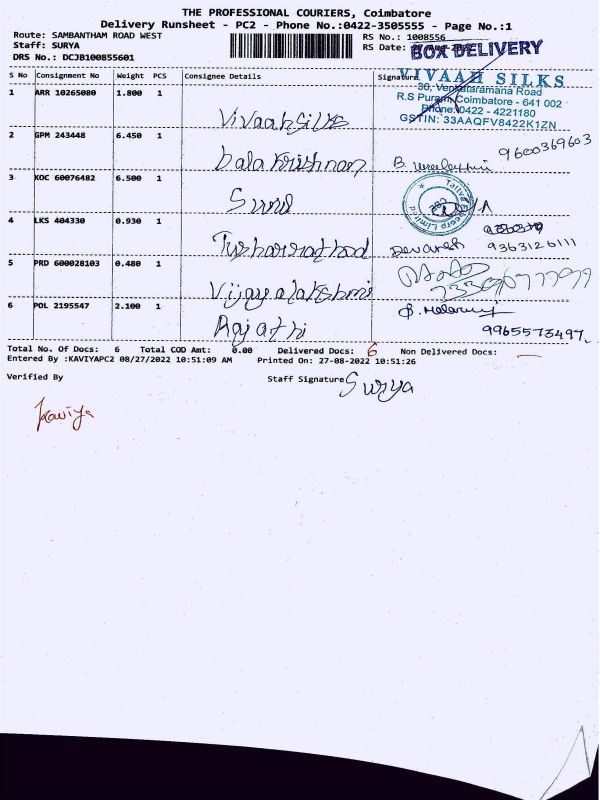 THE PROFESSIONAL COURIERS, Coimbatore
Delivery Runsheet - PC2 - Phone No.:0422-3505555 - Page No.:1
Route: SAMBANTHAM ROAD WEST RS No.: 1008556
Staff: SURYA RS Date:
BOX DELIVERY
DRS No.: DCJB100855601
S No Consignment No Weight PCS Consignee Details Signature
VIVAAH SILKS
30, Venkataramana Road
R.S Puram, Coimbatore - 641 002
Phone:0422 - 4221180
GSTIN: 33AAQFV8422K1ZN
1 ARR 10265080 1.800 1 Vivaah Silks
2 GPM 243448 6.450 1 Balakrishnan B. 9600369603
3 KOC 60076482 6.500 1
4 LKS 404330 0.930 1 Tusharrathod Devaresh 9363126111
5 PRD 600028103 0.480 1 Vijayalakshmi
6 POL 2195547 2.100 1 Rajathi 9965573497
Total No. Of Docs: 6 Total COD Amt: 0.00 Delivered Docs: 6 Non Delivered Docs: —
Entered By :KAVIYAPC2 08/27/2022 10:51:09 AM Printed On: 27-08-2022 10:51:26
Verified By Staff Signature Surya
Kaviya